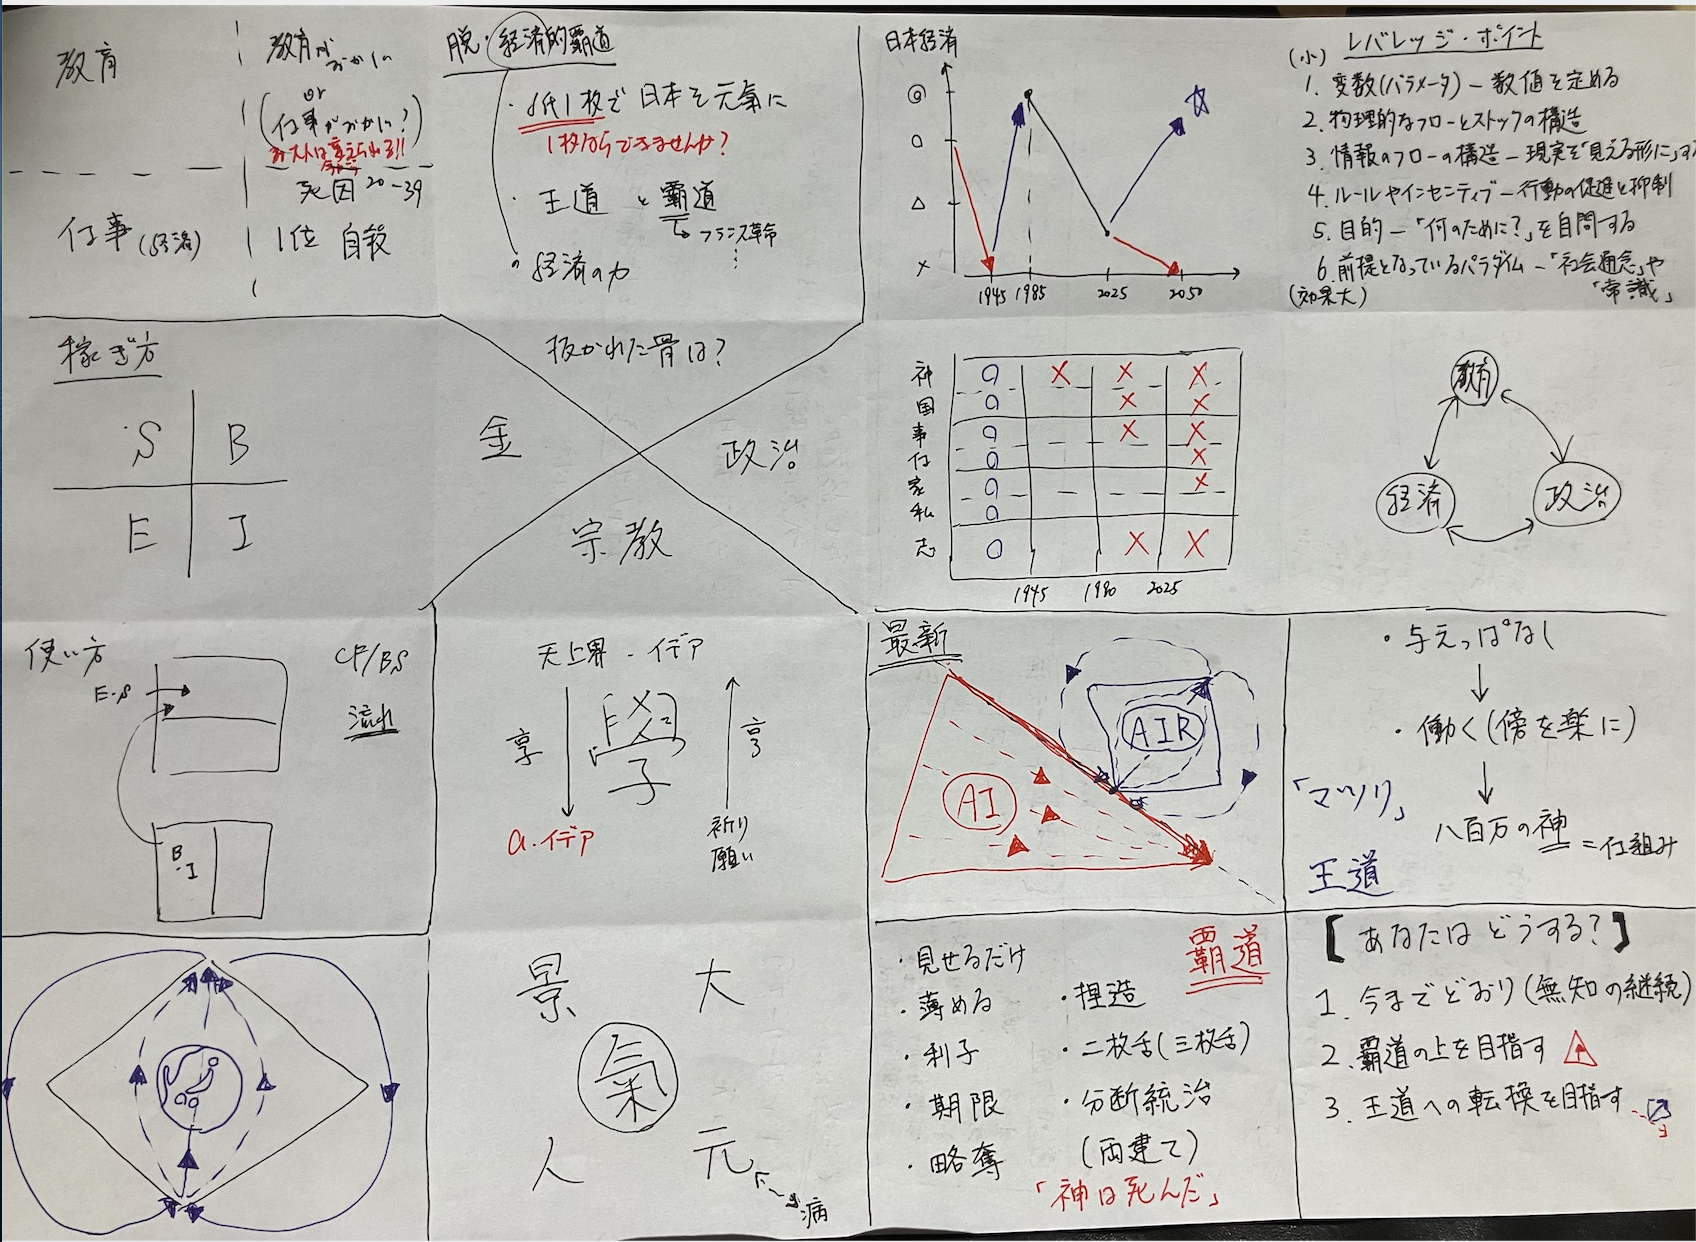 教育
教育がおかしい
or
(仕事がおかしい?)
お大人は変えられる!!
今から
仕事(経済)
死因 20-39
1位 自殺
脱・経済的覇道
・紙1枚で日本を元気に
1枚ならできませんか?
・王道と覇道
フランス革命
・経済の力
日本経済
◎
○
△
×
1945 1985 2025 2050
(小) レバレッジ・ポイント
1. 変数(パラメータ) – 数値を定める
2. 物理的なフローとストックの構造
3. 情報のフローの構造 – 現実を「見える形に」する
4. ルールやインセンティブ – 行動の促進と抑制
5. 目的 – 「何のために?」を自問する
6. 前提となっているパラダイム – 「社会通念」や
(効果大) 「常識」
稼ぎ方
S B
E I
抜かれた骨は?
金
政治
宗教
神 ○ × × ×
国 ○ × ×
事 ○ × ×
仕 ○ ×
家 ○ ×
私 ○
志 ○ × ×
1945 1980 2025
教育
経済
政治
使い方
E・S
CF/BS
流れ
B
・I
天上界・イデア
享
學
享
a・イデア
祈り
願い
最新
AI
AIR
・与えっぱなし
・働く(傍を楽に)
「マツリ」
八百万の神=仕組み
王道
景 大
氣
人 元
病
覇道
・見せるだけ
・薄める
・利子
・期限
・略奪
・捏造
・二枚舌(三枚舌)
・分断統治
(両建て)
「神は死んだ」
【あなたはどうする?】
1. 今までどおり(無知の継続)
2. 覇道の上を目指す
3. 王道への転換を目指す